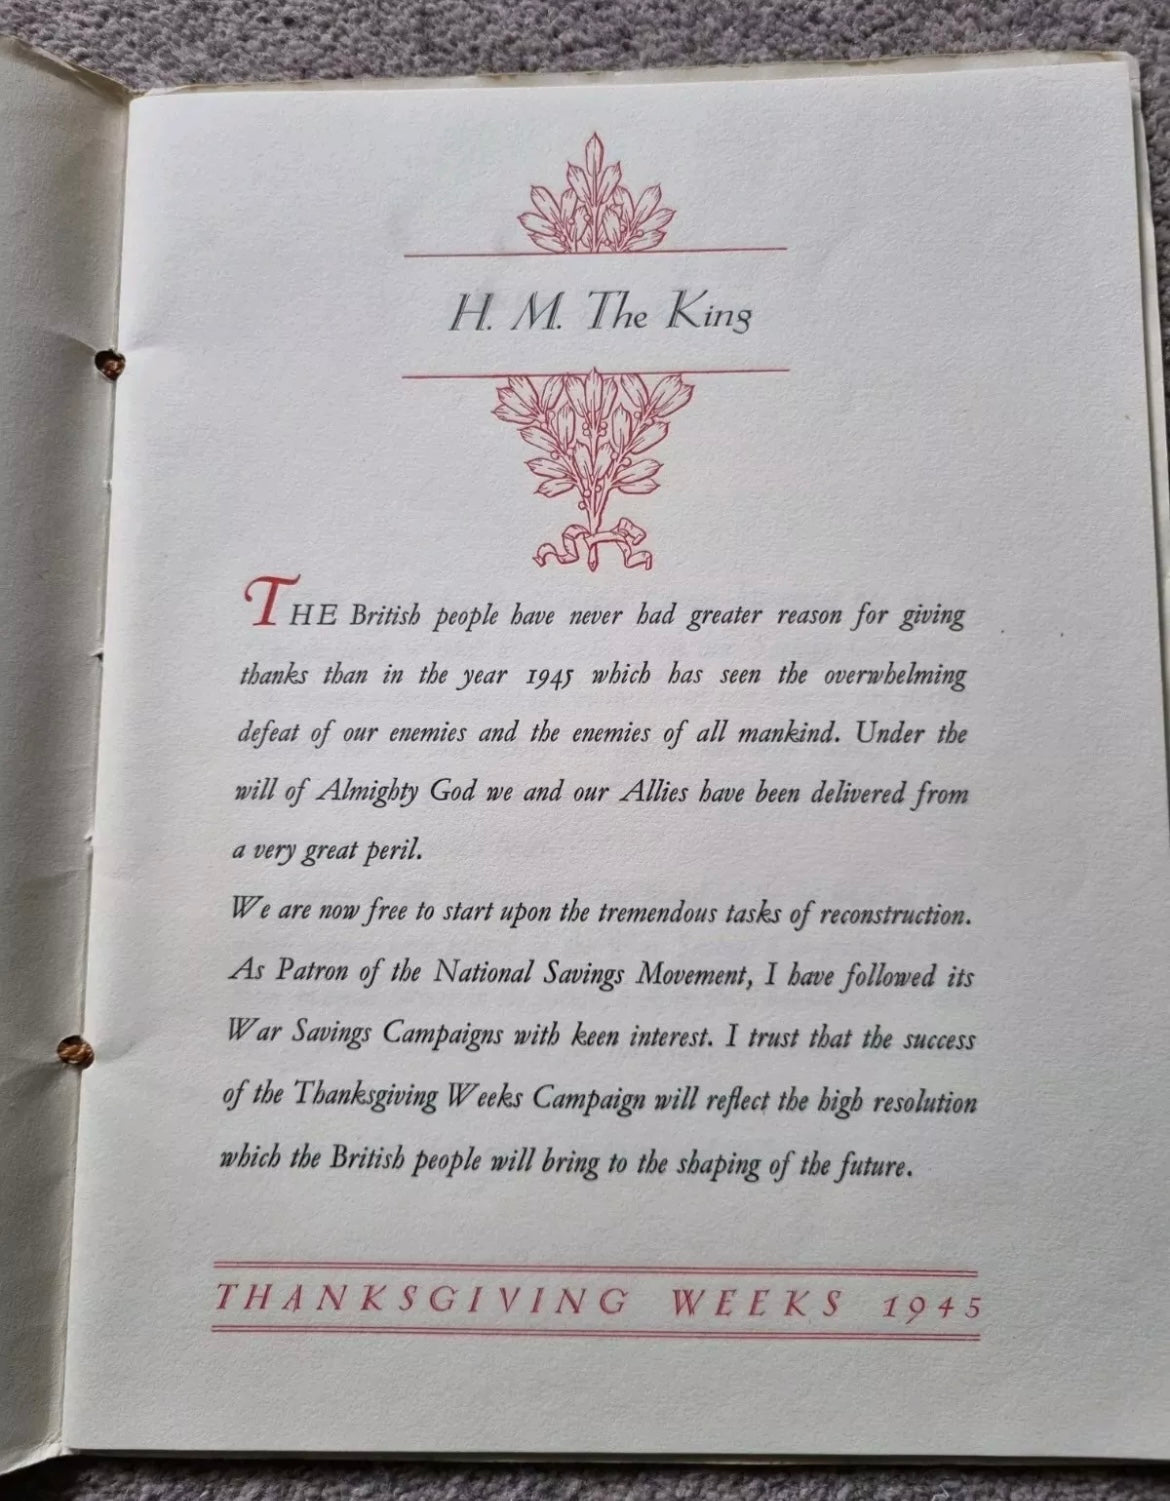 H. M. The King
THE British people have never had greater reason for giving
thanks than in the year 1945 which has seen the overwhelming
defeat of our enemies and the enemies of all mankind. Under the
will of Almighty God we and our Allies have been delivered from
a very great peril.
We are now free to start upon the tremendous tasks of reconstruction.
As Patron of the National Savings Movement, I have followed its
War Savings Campaigns with keen interest. I trust that the success
of the Thanksgiving Weeks Campaign will reflect the high resolution
which the British people will bring to the shaping of the future.
THANKSGIVING WEEKS 1945